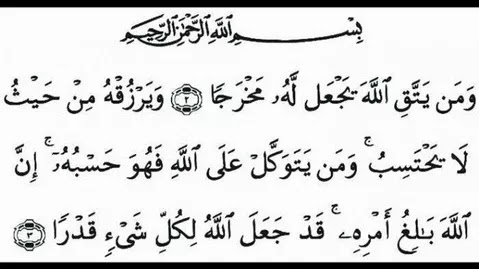 بِسْمِ اللَّهِ الرَّحْمَٰنِ الرَّحِيمِ
وَمَن يَتَّقِ اللَّهَ يَجْعَل لَّهُۥ مَخْرَجًا ﴿٢﴾ وَيَرْزُقْهُ مِنْ حَيْثُ
لَا يَحْتَسِبُ ۚ وَمَن يَتَوَكَّلْ عَلَى اللَّهِ فَهُوَ حَسْبُهُۥٓ ۚ إِنَّ
اللَّهَ بَالِغُ أَمْرِهِۦ ۚ قَدْ جَعَلَ اللَّهُ لِكُلِّ شَيْءٍ قَدْرًا ﴿٣﴾